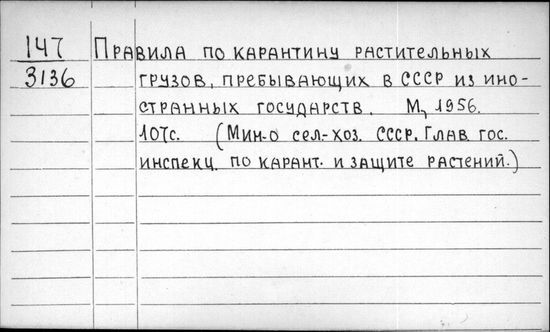 147 Правила по карантину растительных
3136 грузов, пребывающих в СССР из ино-
странных государств. М, 1956.
107с. (Мин-о сел-хоз. СССР. Глав. гос.
инспекц. по карант. и защите растений.)